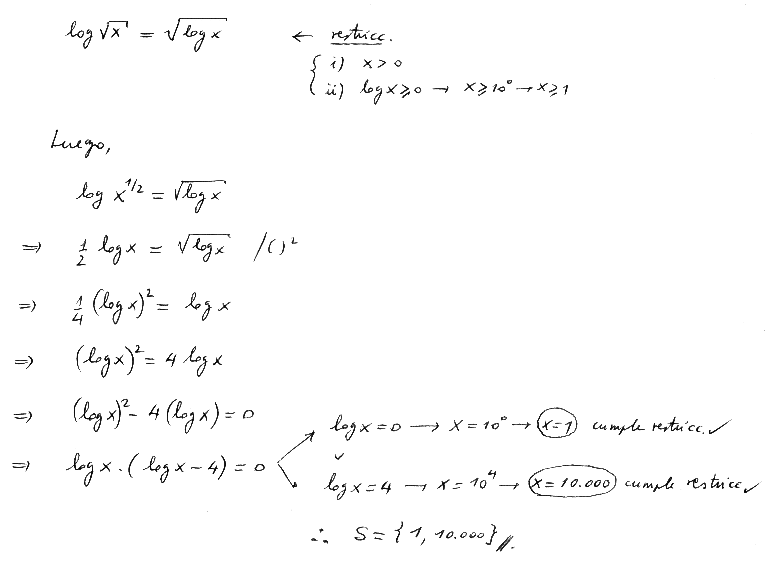 log √x = √log x ← restricc.
{ i) x > 0
ii) log x ⩾ 0 → x ⩾ 10⁰ → x ⩾ 1
Luego,
log x^1/2 = √log x
⇒ 1/2 log x = √log x /( )²
⇒ 1/4 (log x)² = log x
⇒ (log x)² = 4 log x
⇒ (log x)² - 4 (log x) = 0
log x = 0 → x = 10⁰ → x = 1 cumple restricc. ✓
⇒ log x · (log x - 4) = 0
∨
log x = 4 → x = 10⁴ → x = 10.000 cumple restricc ✓
∴ S = {1, 10.000} //.